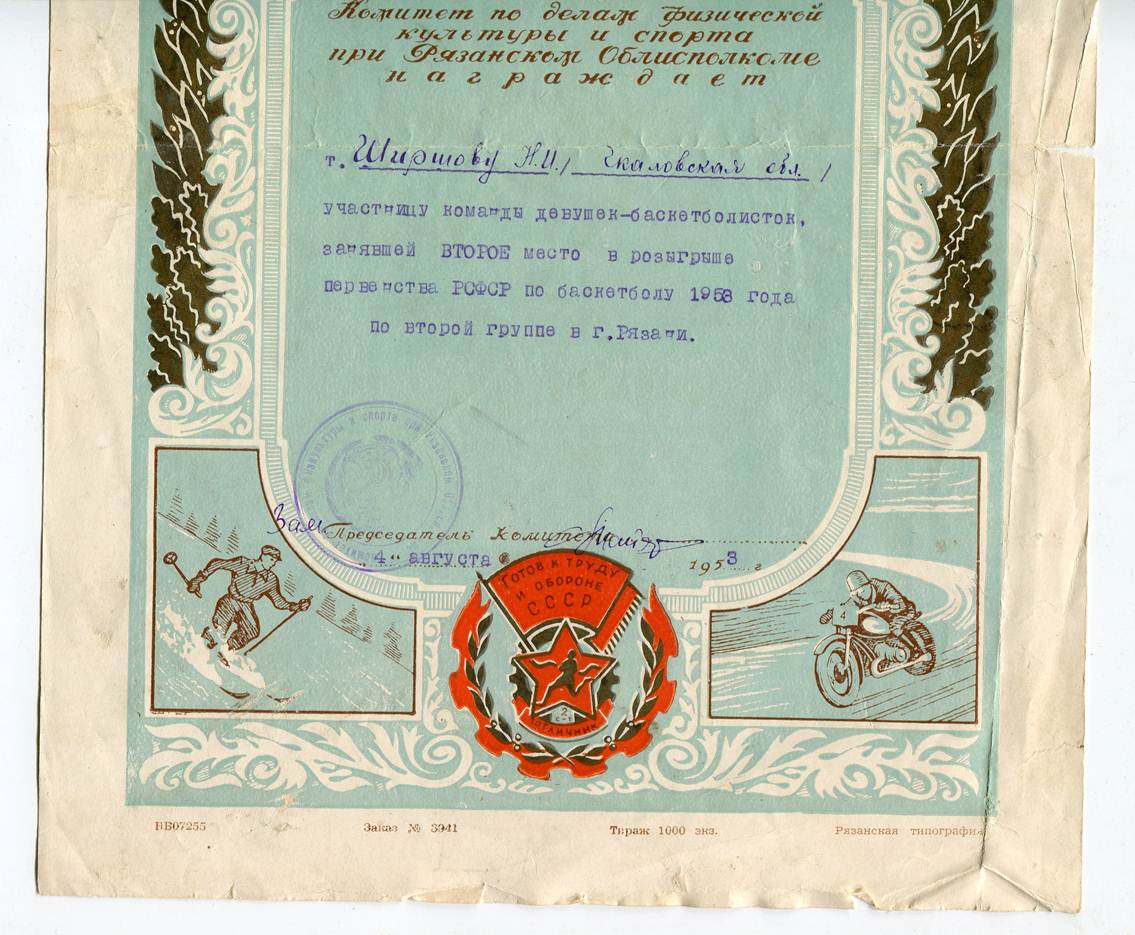 Комитет по делам физической
культуры и спорта
при Рязанском Облисполкоме
награждает
т. Ширшову Н.И./ Чкаловская обл./
участницу команды девушек-баскетболисток,
занявшей ВТОРОЕ место в розыгрыше
первенства РСФСР по баскетболу 1953 года
по второй группе в г.Рязани.
физкультуры и спорта при Рязанском
Зам. Председатель Комитета
"4" августа 1953 г
ГОТОВ К ТРУДУ
И ОБОРОНЕ
СССР
4
2
С-Т
ОТЛИЧНИК
ВБ07255 Заказ № 3941 Тираж 1000 экз. Рязанская типография